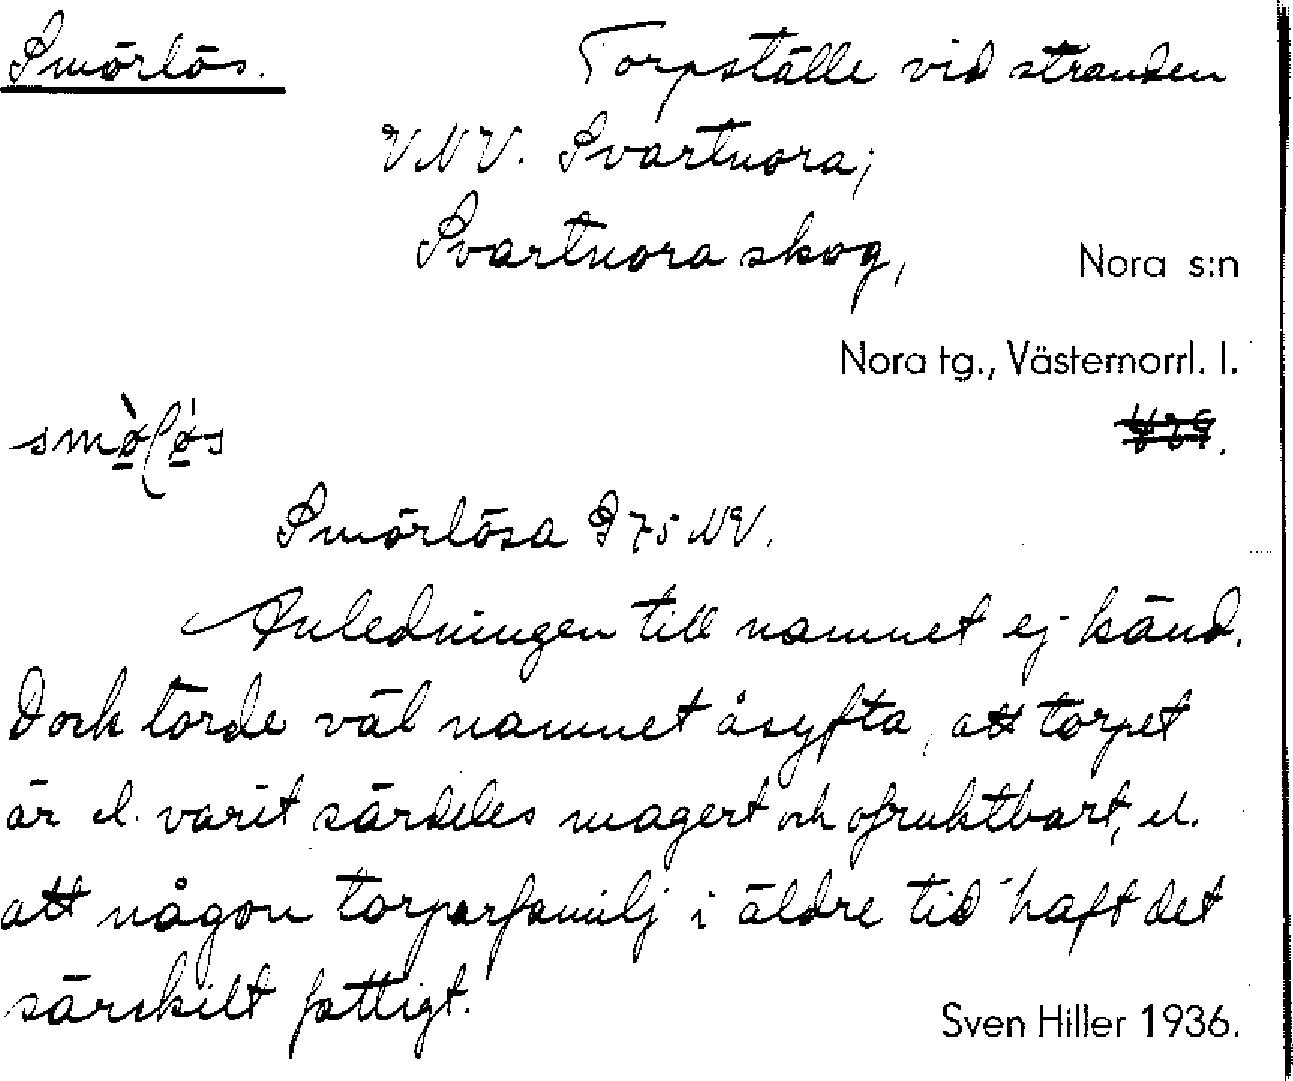 Smörlös. Torpställe vid stranden
V.N.V. Svartnora;
Svartnora skog, Nora s:n
Nora tg., Västernorrl. l.
Smörlösa 75 NV.
Anledningen till namnet ej känd.
Dock torde väl namnet åsyfta, att torpet
är el. varit särdeles magert och ofruktbart, el.
att någon torparfamilj i äldre tid haft det
särskilt fattigt. Sven Hiller 1936.